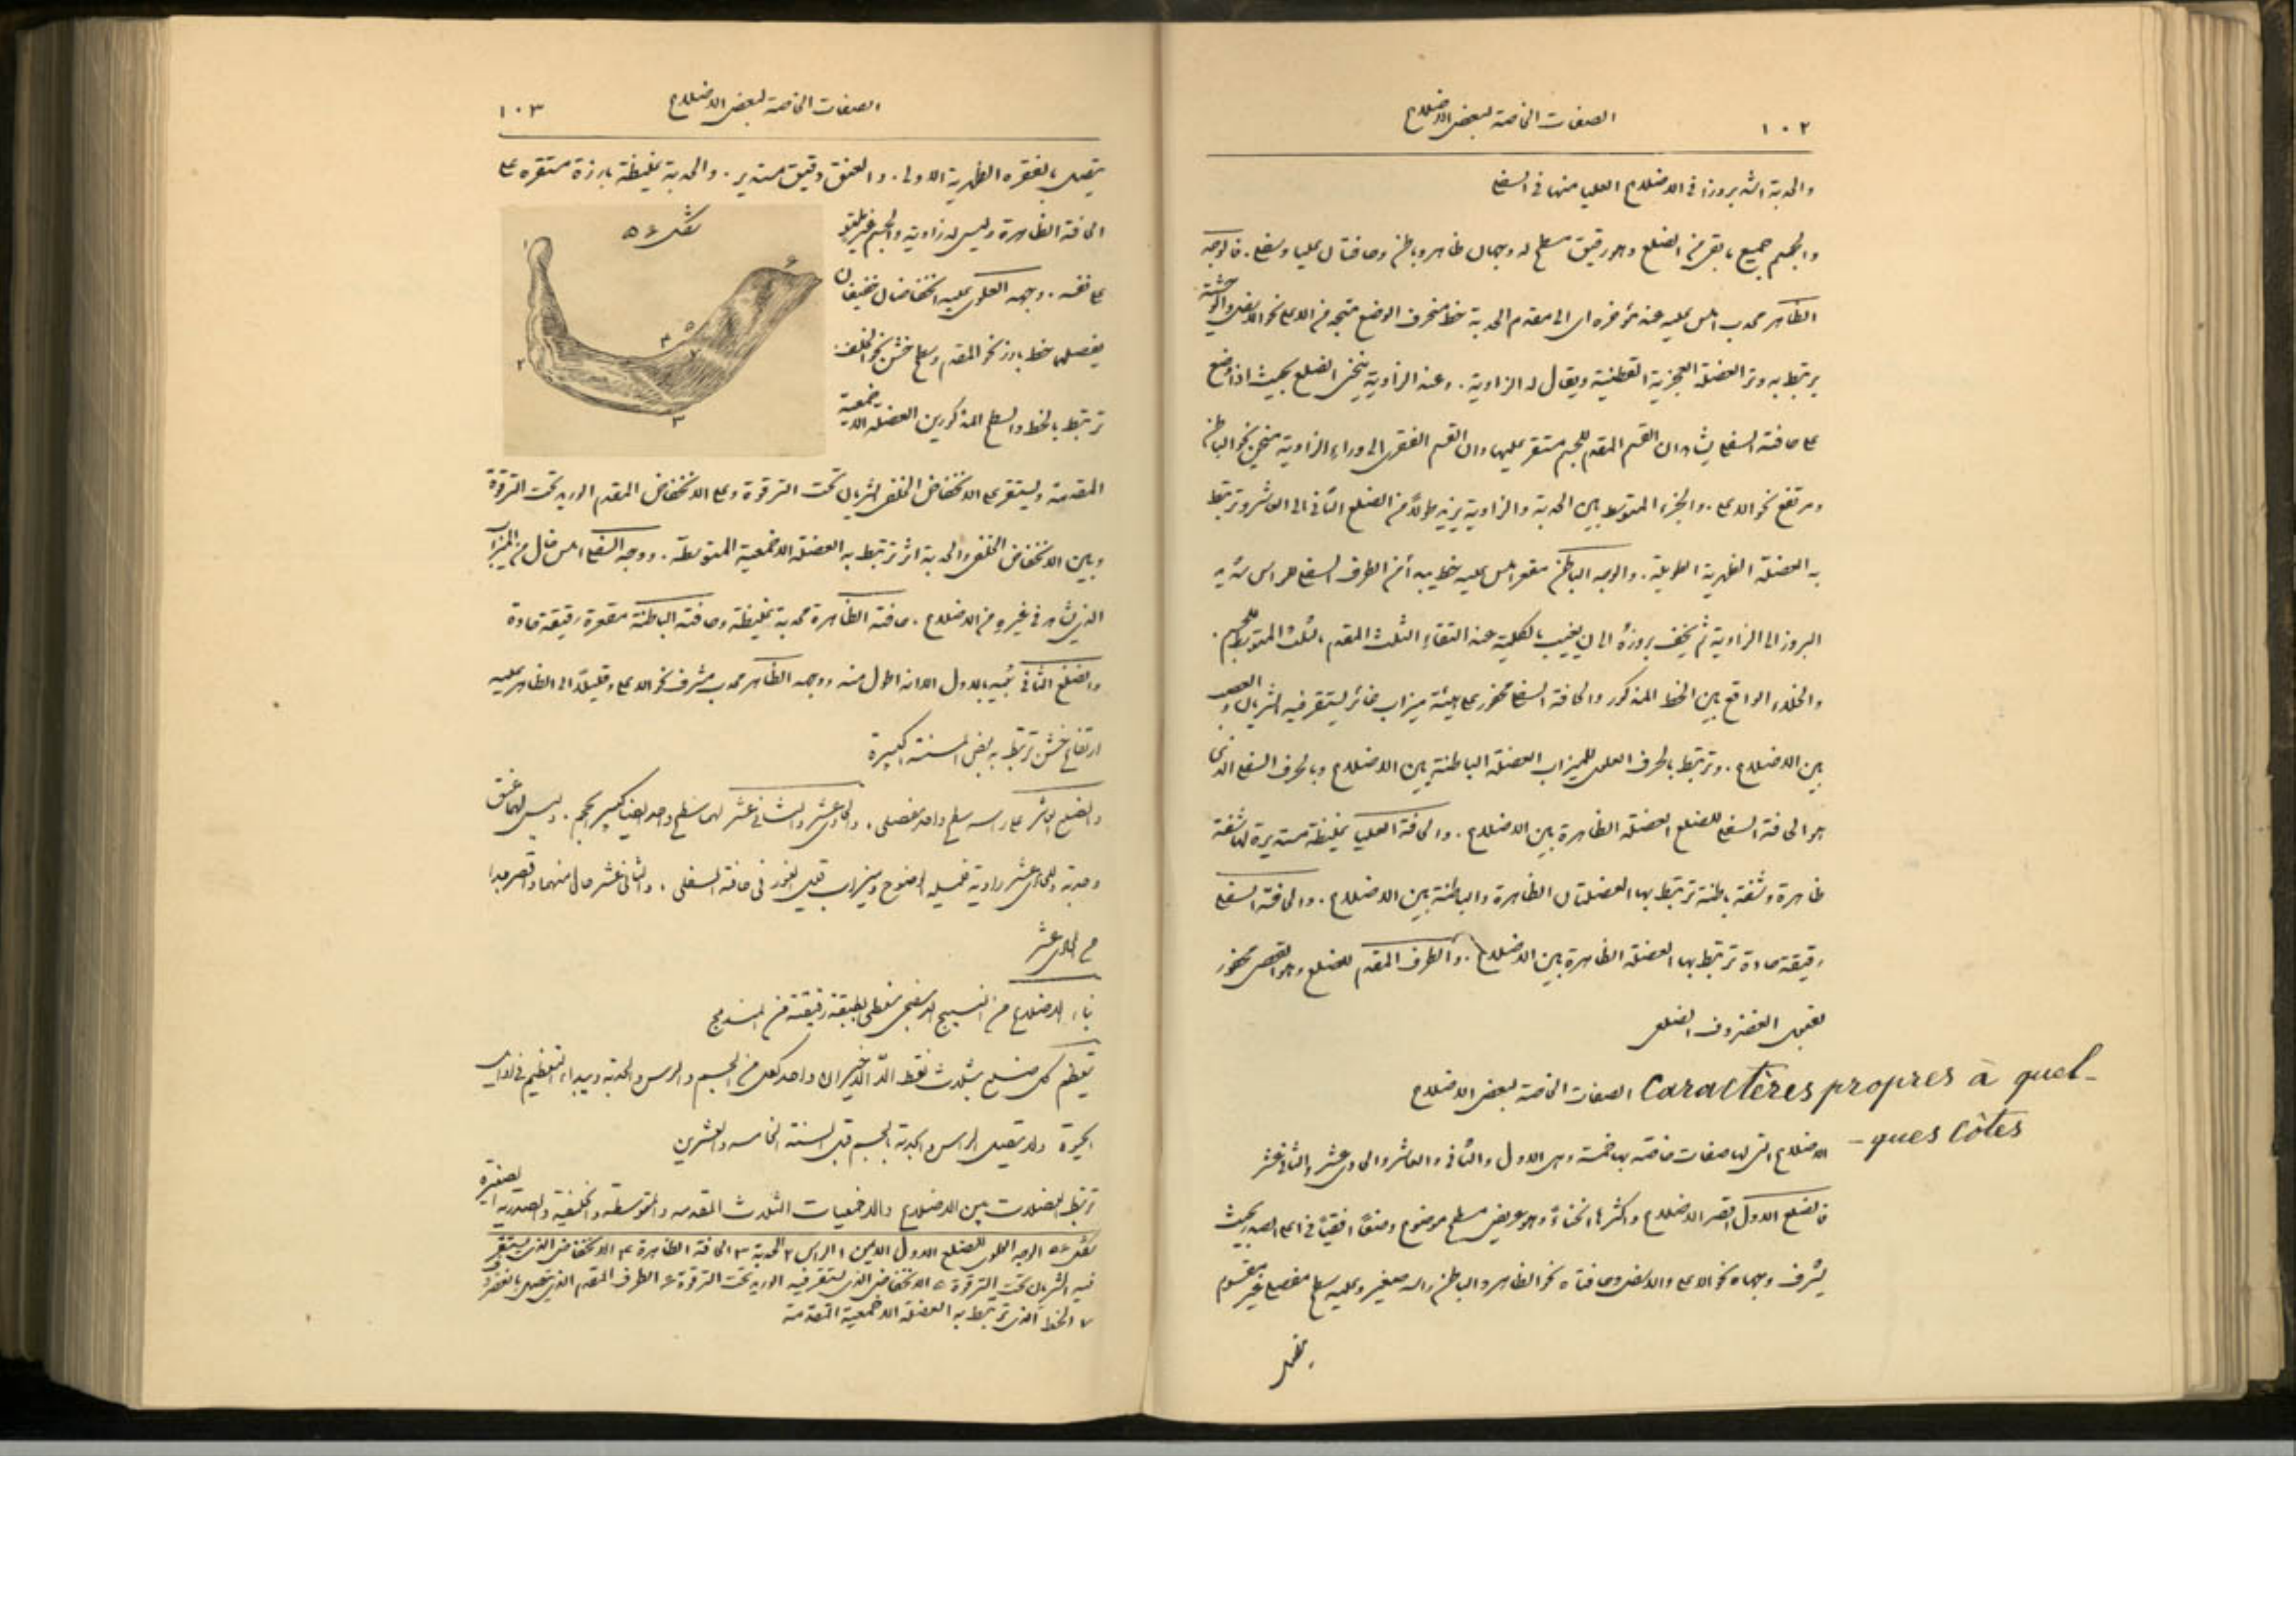 ١٠٢ الصفات الخاصة لبعض الاضلاع
والحدبة اشد بروزا في الاضلاع العليا منها في السفلى
والجسم جميع ما بقى من الضلع وهو رقيق مسطح له وجهان ظاهر وباطن وحافتان عليا وسفلى . فالوجه
الظاهر محدب املس عليه عند مؤخره اى الى مقدم الحدبة خط منحرف الوضع متجه من الاعلى نحو الاسفل والوحشية
يرتبط به وتر العضلة العجزية القطنية ويقال له الزاوية . وعند الزاوية ينحنى الضلع بحيث اذا وضع
على حافته السفلى يشاهد ان القسم المقدم للجسم مستقر عليها وان القسم الفقرى الى وراء الزاوية منحن نحو الباطن
ومرتفع نحو الاعلى . والجزء المتوسط بين الحدبة والزاوية يزيد طولاً من الضلع الثانى الى العاشر وترتبط
به العضلة الظهرية الطويلة . والوجه الباطن مقعر املس عليه خط يبدأ من الطرف السفلى للراس شديد
البروز الى الزاوية ثم يخف بروزهُ الى ان يغيب بالكلية عند التقاء الثلث المقدم بالثلث المتوسط للجسم .
والخلاء الواقع بين الخط المذكور والحافة السفلى محفور على هيئة ميزاب غائر يستقر فيه الشريان والعصب
بين الاضلاع . وترتبط بالحرف العلوى للميزاب العضلة الباطنة بين الاضلاع وبالحرف السفلى الذى
هو الحافة السفلى للضلع العضلة الظاهرة بين الاضلاع . والحافة العليا غليظة مستديرة لها شفة
ظاهرة وشفة باطنة ترتبط بها العضلتان الظاهرة والباطنة بين الاضلاع . والحافة السفلى
رقيقة حادة ترتبط بها العضلة الظاهرة بين الاضلاع . والطرف المقدم للضلع وهو القصى محفور
لقبول الغضروف الضلعى
الصفات الخاصة لبعض الاضلاع Caractères propres à quel-
-ques côtes
الاضلاع التى لها صفات خاصة بها خمسة وهى الاول والثانى والعاشر والحادى عشر والثانى عشر
فالضلع الاول اقصر الاضلاع واكثرها انحناءً وهو عريض مسطح موضوع وضعًا افقيًا فى اعلى الصدر بحيث
يشرف وجهاه نحو الاعلى والاسفل وحافتاه نحو الظاهر والباطن راسه صغير وعليه سطح مفصلى غير مقسوم
الصفات الخاصة لبعض الاضلاع ١٠٣
يتصل بالفقره الظهرية الاولى . والعنق دقيق مستدير . والحدبة غليظة بارزة مستقره على
الحافة الظاهرة وليس له زاوية والجسم غير ملتو
على نفسه . وجهه العلوى عليه انخفاضان خفيفان
يفصلهما خط بارز نحو المقدم وسطح خشن نحو الخلف .
ترتبط بالخط والسطح المذكورين العضلة الاخمعية
شكل ٥٤
١
٢
٣
٤
٥
٦
٧
المقدمة ويستقر على الانخفاض الخلفى الشريان تحت الترقوة وعلى الانخفاض المقدم الوريد تحت الترقوة
وبين الانخفاض الخلفى والحدبة اثر ترتبط به العضلة الاخمعية المتوسطة . ووجهه السفلى املس خال من الميزاب
الذى يشاهد فى غيره من الاضلاع . حافته الظاهرة محدبة غليظة وحافته الباطنة مقعرة رقيقة حادة
والضلع الثانى شبيه بالاول الا انه اطول منه ووجهه الظاهر محدب مشرف نحو الاعلى وقليلاً الى الظاهر عليه
ارتفاع خشن ترتبط به بعض المسننة الكبيرة
والضلع العاشر على راسه سطح واحد مفصلى . والحادى عشر والثانى عشر لهما سطح واحد ايضا كبير الحجم . وليس لهما عنق
وحدبة وللحادى عشر زاوية قليلة الوضوح وميزاب قليل الغور فى حافته السفلى . والثانى عشر خال منهما واقصر جدا
من الحادى عشر
بناء الاضلاع من النسيج الاسفنجى مغطى بطبقة رقيقة من المندمج
تعظم كل ضلع بثلاث نقط الا الاخيران واحد لكل من الجسم والراس والحدبة ويبداء التعظيم فى اوايل
الحيوة ولا يتصل الراس والحدبة بالجسم قبل السنة الخامسه والعشرين
ترتبط العضلات بين الاضلاع والاخمعيات الثلاث المقدمه والمتوسطه والخلفية والصدرية الصغيرة
شكل ٥٤ الوجه العلوى للضلع الاول الايمن ١ الراس ٢ الحدبة ٣ الحافة الظاهرة ٤ الانخفاض الذى يستقر
فيه الشريان تحت الترقوة ٥ الانخفاض الذى يستقر فيه الوريد تحت الترقوة ٦ الطرف المقدم الذى يتصل بالغضروف
٧ الخط الذى ترتبط به العضلة الاخمعية المقدمة